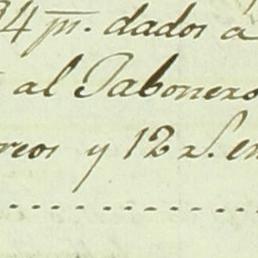 34 ps. dados á
al Jabonero
reos y 12 rs. en